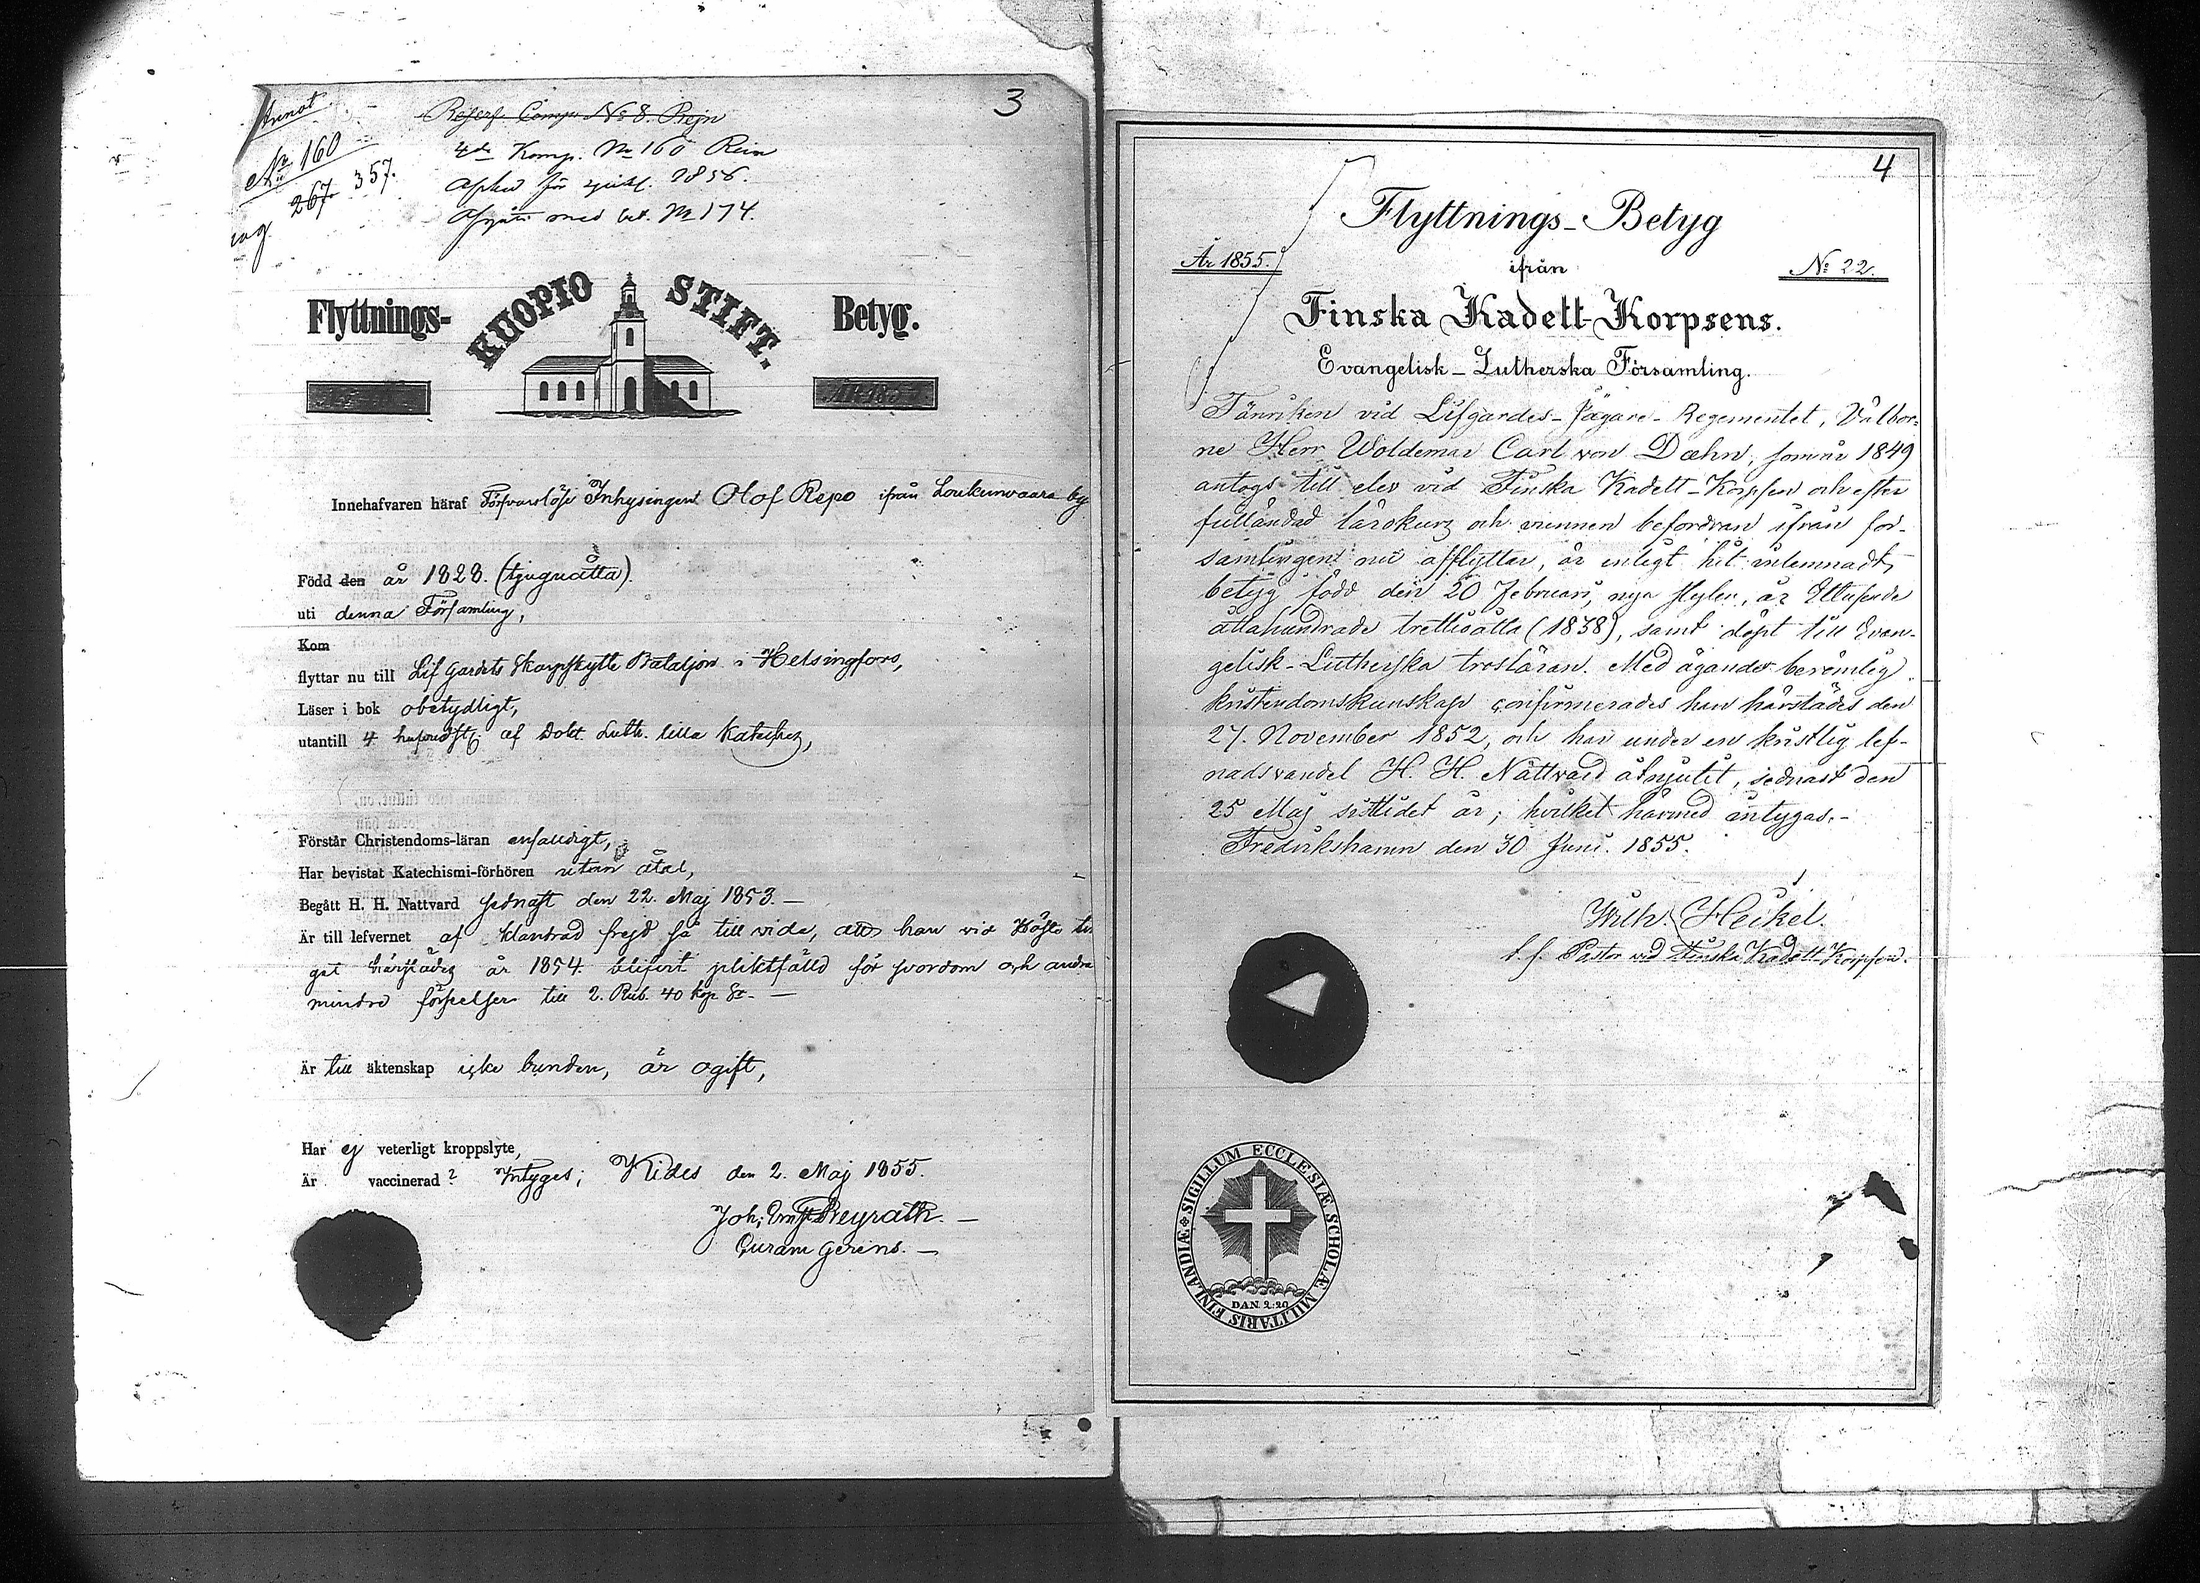 3
Annot
No 160
267 357.
Reserf. Comp. No 8. Rejn
4de Komp. No 160
1856.
med bet. No 174.
Flyttnings- KUOPIO STIFT. Betyg.
Innehafvaren häraf Försvarslöse Inhysingen Olof Repo ifrån Loukunvaara by
Född den år 1828. (tjuguåtta).
uti denna Församling,
Kom
flyttar nu till Lif Gardets Skarpskytte Bataljon i Helsingfors,
Läser i bok obetydligt,
utantill 4 hufvudst. af Doct. Luth. lilla Kateches,
Förstår Christendoms-läran enfaldigt,
Har bevistat Katechismi-förhören utan åtal,
Begått H. H. Nattvard sednast den 22. Maj 1853. —
Är till lefvernet af klandrad frejd så till vida, att han vid Höste tin
get härstädes år 1854. blifvit pliktfälld för svordom och andra
mindre förseelser till 2. Rub. 40 kop Sr. —
Är till äktenskap icke bunden, är ogift,
Har ej veterligt kroppslyte,
Är vaccinerad? Intyges; Kides den 2. Maj 1855.
Joh; Ernst Neyrath. —
Curam gerens. —
4
Flyttnings-Betyg
År 1855. ifrån No 22.
Finska Kadett-Korpsens.
Evangelisk-Lutherska Församling.
Fänriken vid Lifgardes-Jägare-Regementet, Välbor-
ne Herr Woldemar Carl von Dæhn, som år 1849
antogs till elev vid Finska Kadett-Korpsen och efter
fulländad lärokurs och vunnen befordran ifrån för-
samlingen nu afflyttar, är enligt hit inlemnadt
betyg född den 20 Februari, nya stylen, år Ettusende
åttahundrade trettioåtta (1838), samt döpt till Evan-
gelisk-Lutherska trosläran. Med ägande berömlig
kristendomskunskap confirmerades han härstädes den
27. November 1852, och har under en kristlig lef-
nadsvandel H. H. Nattvard åtnjutit, sednast den
25 Maj sistlidet år; hvilket härmed intygas.-
Fredrikshamn den 30 Juni. 1855.
Wilh. Heikel.
t. f. Pastor vid Finska Kadett-Korpsen.
SIGILLUM ECCLESIÆ SCHOLÆ MILITARIS FINLANDIÆ
DAN. 2:20